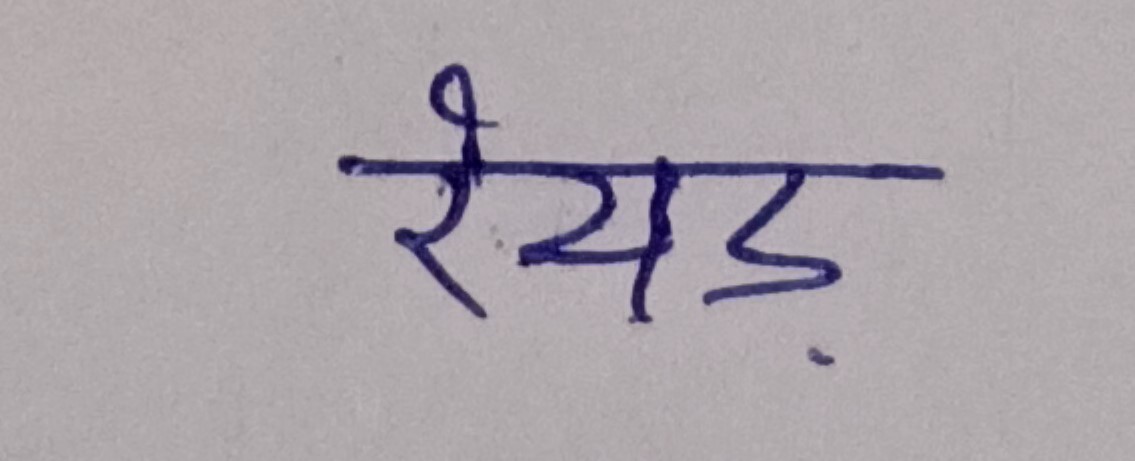 रेयड़